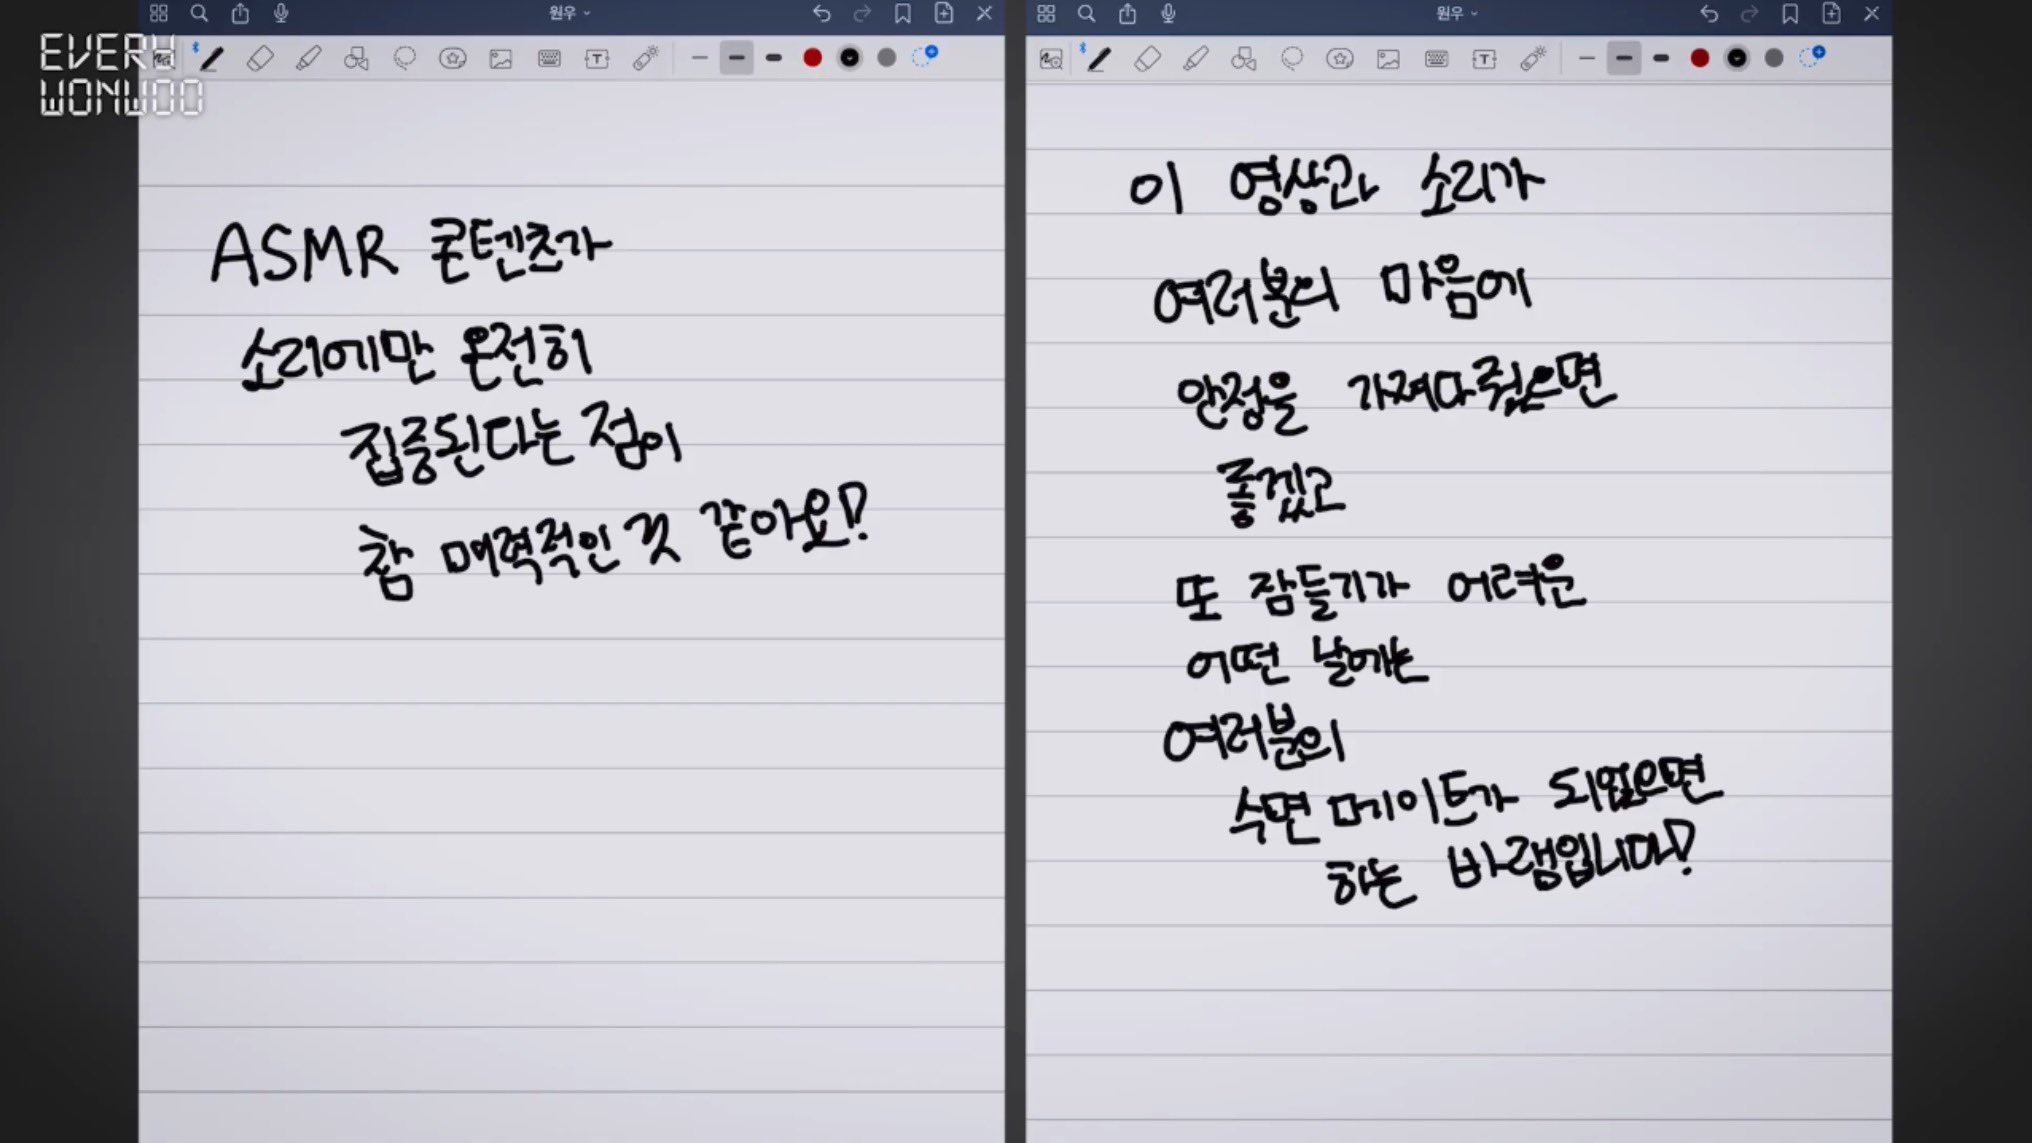 EVERY
WONWOO
원우
ASMR 콘텐츠가
소리에만 온전히
집중된다는 점이
참 매력적인 것 같아요!
원우
이 영상과 소리가
여러분의 마음에
안정을 가져다줬으면
좋겠고
또 잠들기가 어려운
어떤 날에는
여러분의
수면 메이트가 되었으면
하는 바램입니다!